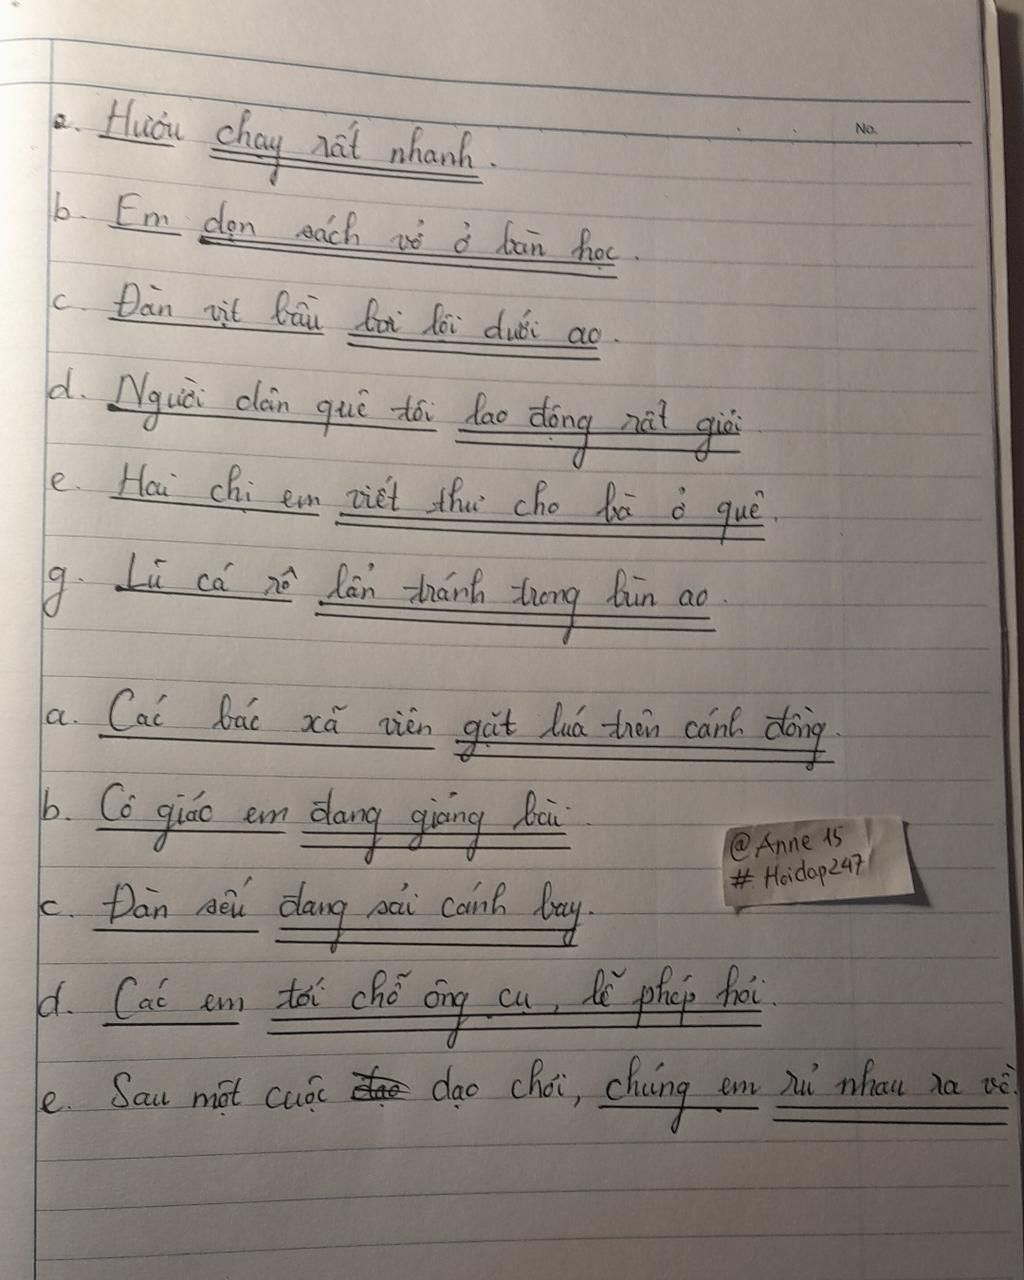 No.
a. Hươu chạy rất nhanh.
b. Em dọn sách vở ở bàn học.
c. Đàn vịt bầu bơi lội dưới ao.
d. Người dân quê tôi lao động rất giỏi
e. Hai chị em viết thư cho bà ở quê.
g. Lũ cá rô lẩn tránh trong bùn ao.
a. Các bác xã viên gặt luá trên cánh đồng.
b. Cô giáo em đang giảng bài.
c. Đàn sếu đang sải cánh bay.
d. Các em tới chỗ ông cụ, lễ phép hỏi.
e. Sau một cuộc dạo dạo chơi, chúng em rủ nhau ra về.
@Anne 15
# Hoidap247